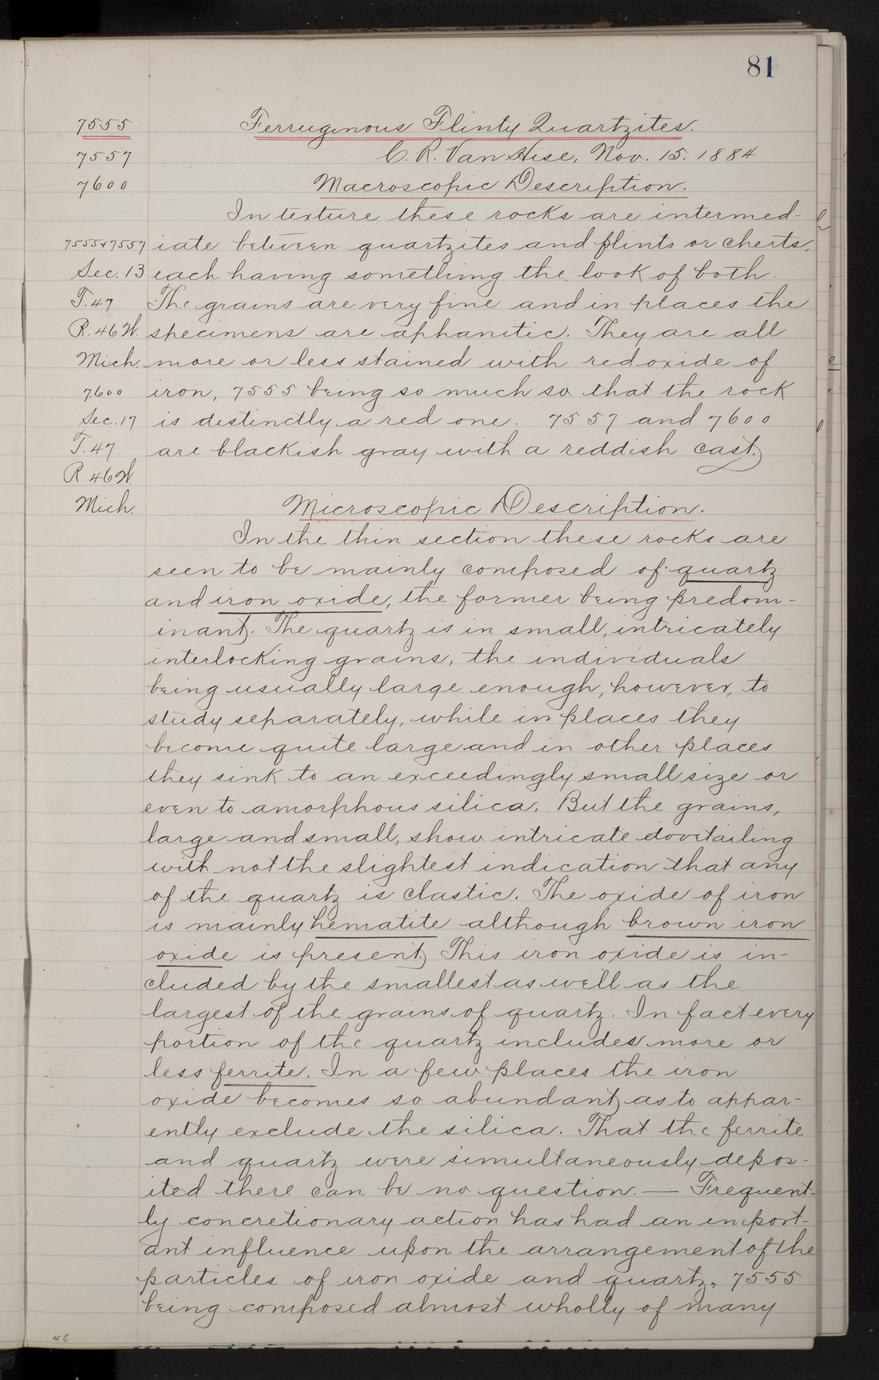 81
7555 Ferruginous Flinty Quartzites.
7557 C. R. Van Hise, Nov. 15. 1884
7600 Macroscopic Description.
In texture these rocks are intermed-
7555&7557 iate between quartzites and flints or cherts,
Sec. 13 each having something the look of both.
T. 47 The grains are very fine and in places the
R. 46 W. specimens are aphanitic. They are all
Mich. more or less stained with red oxide of
7600 iron, 7555 being so much so that the rock
Sec. 17 is distinctly a red one. 7557 and 7600
T. 47 are blackish gray with a reddish cast.
R. 46 W.
Mich. Microscopic Description.
In the thin section these rocks are
seen to be mainly composed of quartz
and iron oxide, the former being predom-
inant. The quartz is in small, intricately
interlocking grains, the individuals
being usually large enough, however, to
study separately, while in places they
become quite large and in other places
they sink to an exceedingly small size or
even to amorphous silica. But the grains,
large and small, show intricate dovetailing
with not the slightest indication that any
of the quartz is clastic. The oxide of iron
is mainly hematite although brown iron
oxide is present. This iron oxide is in-
cluded by the smallest as well as the
largest of the grains of quartz. In fact every
portion of the quartz includes more or
less ferrite. In a few places the iron
oxide becomes so abundant as to appar-
ently exclude the silica. That the ferrite
and quartz were simultaneously depos-
ited there can be no question. — Frequent-
ly concretionary action has had an import-
ant influence upon the arrangement of the
particles of iron oxide and quartz, 7555
being composed almost wholly of many
46